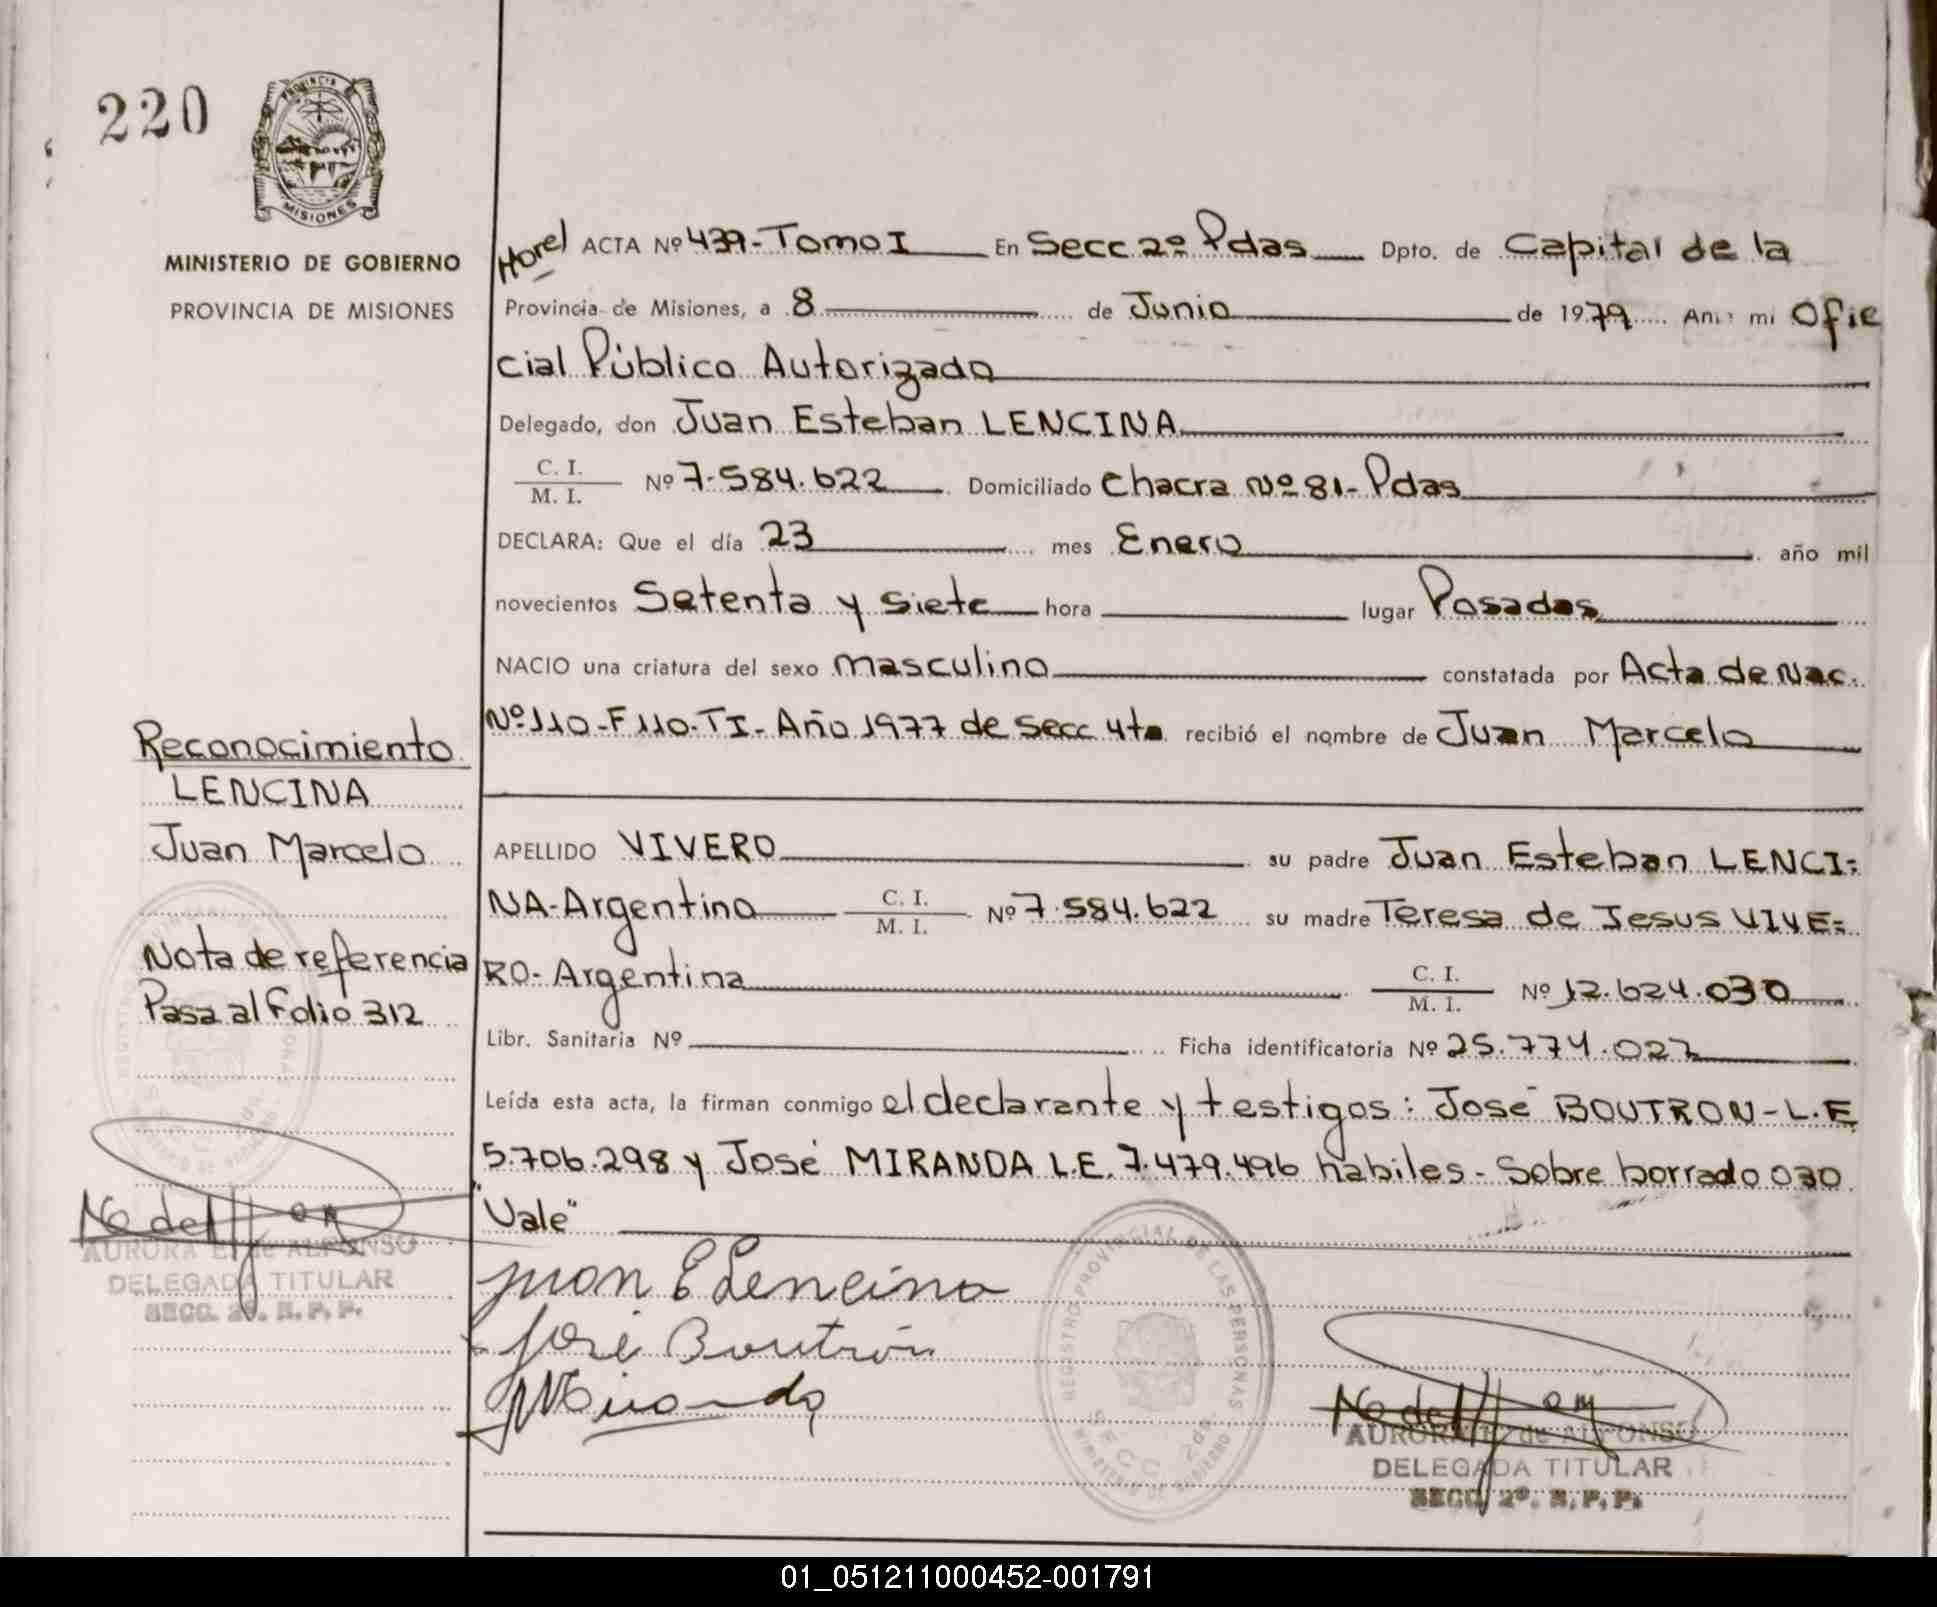 220
PROVINCIA
MISIONES
MINISTERIO DE GOBIERNO
PROVINCIA DE MISIONES
ACTA Nº 439-Tomo I En Secc 2º Pdas Dpto. de Capital de la
Provincia de Misiones, a 8 de Junio de 1979 Ante mi Ofic
cial Público Autorizado
Delegado, don Juan Esteban LENCINA
C. I.
M. I. Nº 7.584.622 Domiciliado Chacra Nº 81-Pdas
DECLARA: Que el día 23 mes Enero año mil
novecientos Setenta y siete hora lugar Posadas
NACIO una criatura del sexo masculino constatada por Acta de Nac.
Nº 110-F110-TI-Año 1977 de Secc 4ta recibió el nombre de Juan Marcelo
APELLIDO VIVERO su padre Juan Esteban LENCI=
NA-Argentino C. I. M. I. Nº 7.584.622 su madre Teresa de Jesus VIVE=
RO-Argentina C. I. M. I. Nº 12.624.030
Libr. Sanitaria Nº Ficha identificatoria Nº 25.774.027
Leída esta acta, la firman conmigo el declarante y testigos: José BOUTRON-L.E
5.706.298 y José MIRANDA L.E. 7.479.496 habiles-Sobre borrado 030
"Vale"
Juan E Lencina
José Boutrón
JMiranda
Reconocimiento
LENCINA
Juan Marcelo
Nota de referencia
Pasa al Folio 312
AURORA E. de ALFONSO
DELEGADA TITULAR
SECC. 2º. R. P. P.
REGISTRO PROVINCIAL DE LAS PERSONAS
SECC 2da.
MINISTERIO DE GOBIERNO
AURORA E. de ALFONSO
DELEGADA TITULAR
SECC. 2º. R. P. P.
01_051211000452-001791